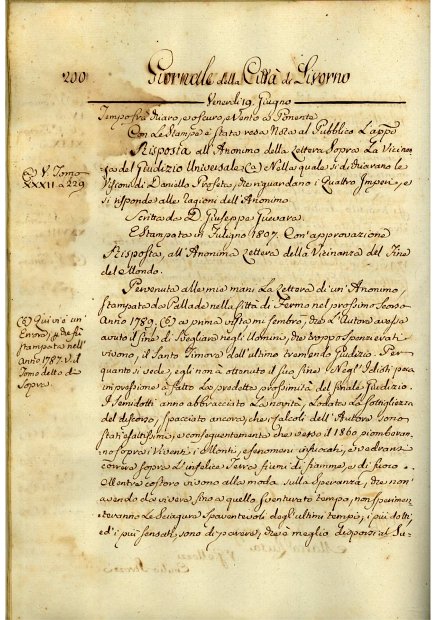 200 Giornale della Città di Livorno
Venerdì 19. Giugno
Tempo frà chiaro, e oscuro, e Vento a Ponente
Con le Stampe è stata resa Nota al Pubblico l'app.
Risposta all'Anonimo della Lettera sopra la Vicinan
za del Giudizio Universale; (a) Nella quale si dichiarano le
(a) V. Tomo
XXXII a 229
Visioni di Daniello Profeta, che riguardano i Quattro Imperi, e
si risponde alle Ragioni dell'Anonimo.
Scritta da D. Giuseppe Guevara.
E stampata in Fuligno 1807. Con approvazione
Risposta, all'Anonima Lettera della Vicinanza del Fine
del Mondo.
Pervenuta alle mie mani la Lettera di un'Anonimo,
Stampata da Pallade nella Città di Fermo nel prossimo scorso
Anno 1789. (b) a prima vista mi sembrò, che l'Autore avesse
(b) Qui vi è un'
Errore, che fù
stampata nell'
Anno 1787. V. il
Tomo detto di
Sopra.
avuto il fine di svegliare negli Uomini, che troppo spensierati
vivono, il Santo Timore dell'ultimo tremendo Giudizio. Per
quanto si vede, egli non à ottenuto il suo fine. Negl'Idioti poca
impressione à fatto la predetta prossimità del finale Giudizio.
I Semidotti anno abbracciato la novità, lodata la sottigliezza
del discorso, spacciato ancora, che i calcoli dell'Autore sono
stati esattissimi, e conseguentemente che verso il 1860 piomberan-
no sopra i Viventi i Monti, e fenomeni infuocati, e vedranno
correre sopra l'infelice Terra fiumi di fiamme, e di fuoco.
Mentre costoro vivono alla moda sulla Speranza, che non
avendo di vivere, fino a quello sventurato tempo, non sperimen-
teranno le Sciagure spaventevoli degl'ultimi tempi, i più dotti
ed i più sensati, sono di parere, che è meglio disporsi al Su-